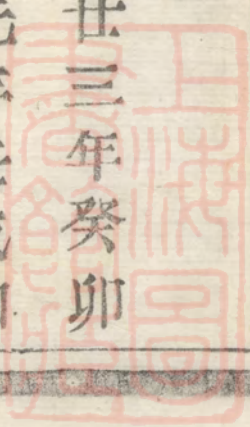 廿三年癸卯
上海圖
書館藏